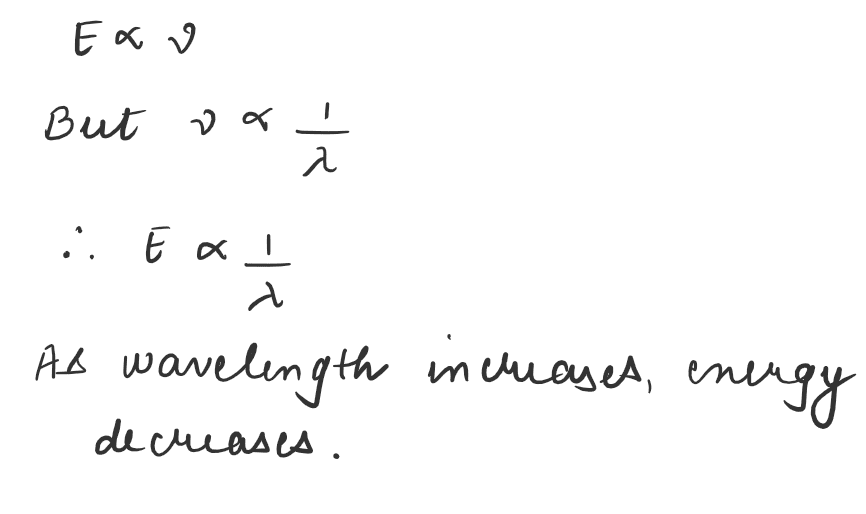 E ∝ ν
But ν ∝ 1/λ
∴ E ∝ 1/λ
As wavelength increases, energy
decreases.